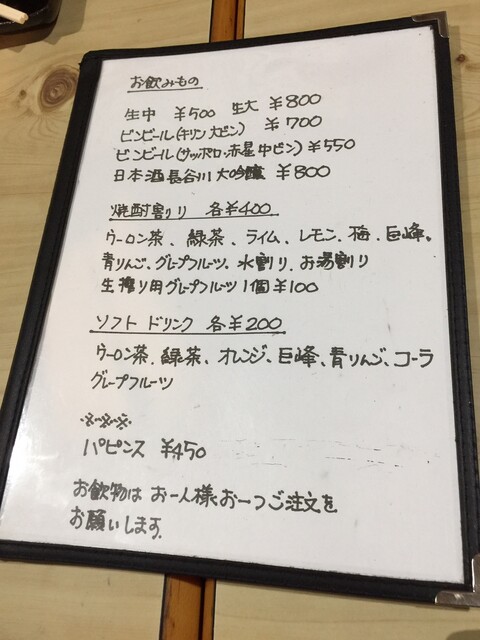 お飲みもの
生中 ¥500 生大 ¥800
ビンビール(キリン大ビン) ¥700
ビンビール(サッポロ・赤星中ビン) ¥550
日本酒長谷川大吟醸 ¥800
焼酎割り 各¥400
ウーロン茶、緑茶、ライム、レモン、梅、巨峰、
青りんご、グレープフルーツ、水割り、お湯割り
生搾り用グレープフルーツ1個¥100
ソフトドリンク 各¥200
ウーロン茶、緑茶、オレンジ、巨峰、青りんご、コーラ
グレープフルーツ
※※※
パピンス ¥450
お飲物はお一人様お一つご注文を
お願いします。